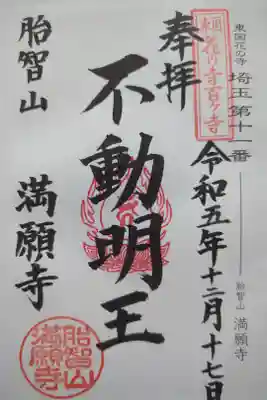 東国花の寺 埼玉第十一番
胎智山 満願寺
東国花の寺百ヶ寺
奉拝
令和五年十二月十七日
不動明王
胎智山
満願寺
胎智山
満願寺